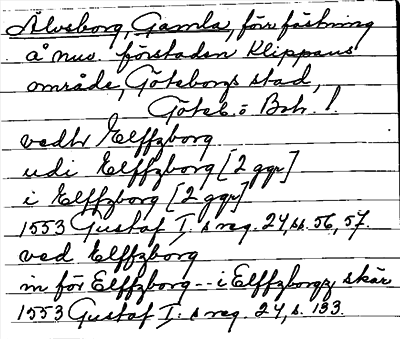 Älvsborg, Gamla, förr fästning
å nuv. förstaden Klippans
område, Göteborgs stad,
Göteb. o Boh. l.
vedh Elffzborg
udi Elffzborg [2 ggr]
i Elffzborg [2 ggr]
1553 Gustaf I:s reg. 24, ss. 56, 57.
ved Elffzborg
in för Elffzborg -- i Elffzborgz skär
1553 Gustaf I:s reg. 24, s. 133.